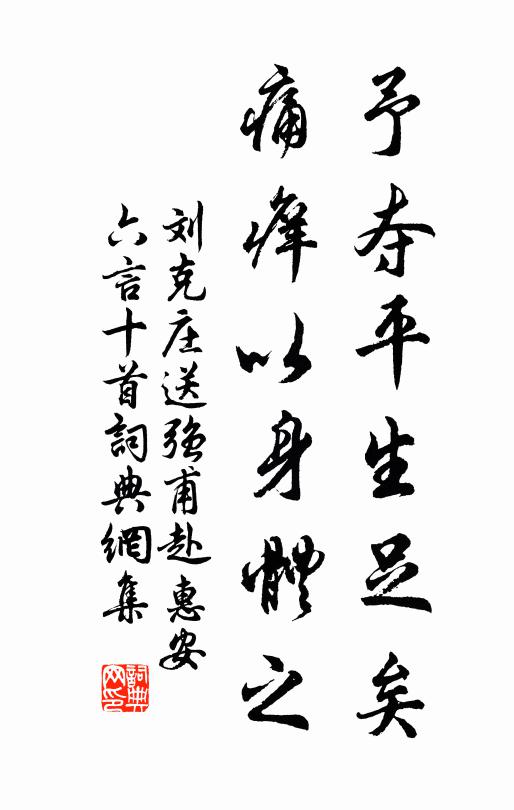 予夺平生足矣
痛痒以身體之
刘克庄送强甫赴惠安
六言十首詞典網集
詞典網印